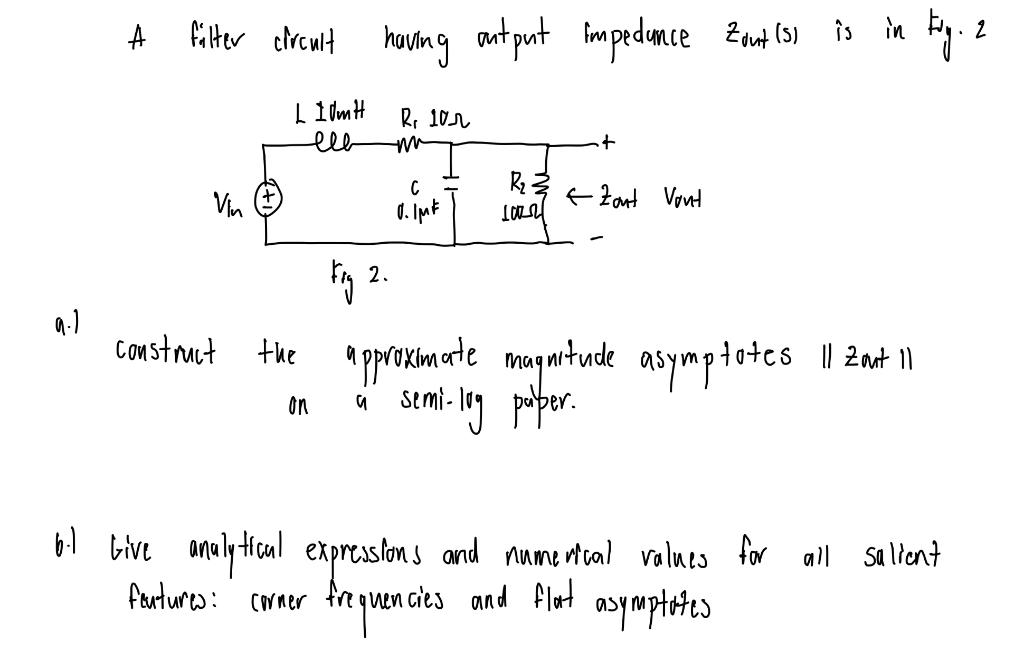 A filter circuit having output impedance Zout(s) is in Fig. 2
L 10mH
R₁ 10Ω
+
Vin
C
0.1µF
R₂
100Ω
← Zout Vout
−
Fig 2.
a.)
construct the approximate magnitude asymptotes || Zout ||
on a semi-log paper.
b.) Give analytical expressions and numerical values for all salient
features: corner frequencies and flat asymptotes